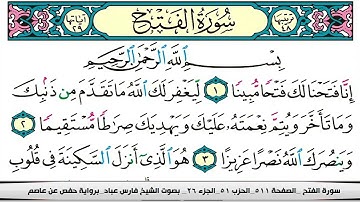 سُورَةُ الْفَتْحِ
بِسْمِ اللَّهِ الرَّحْمَٰنِ الرَّحِيمِ
إِنَّا فَتَحْنَا لَكَ فَتْحًا مُبِينًا ١ لِيَغْفِرَ لَكَ اللَّهُ مَا تَقَدَّمَ مِن ذَنْبِكَ
وَمَا تَأَخَّرَ وَيُتِمَّ نِعْمَتَهُ عَلَيْكَ وَيَهْدِيَكَ صِرَاطًا مُسْتَقِيمًا ٢
وَيَنْصُرَكَ اللَّهُ نَصْرًا عَزِيزًا ٣ هُوَ الَّذِي أَنْزَلَ السَّكِينَةَ فِي قُلُوبِ
سورة الفتح _الصفحة ٥١١_ الحزب ٥١_ الجزء ٢٦_ بصوت الشيخ فارس عباد_ برواية حفص عن عاصم